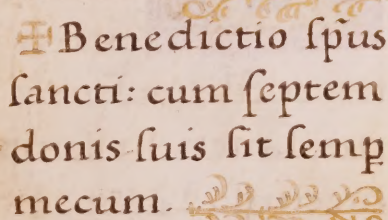 ✠ Benedictio ſp̃us
ſancti: cum ſeptem
donis ſuis ſit ſemꝑ
mecum.